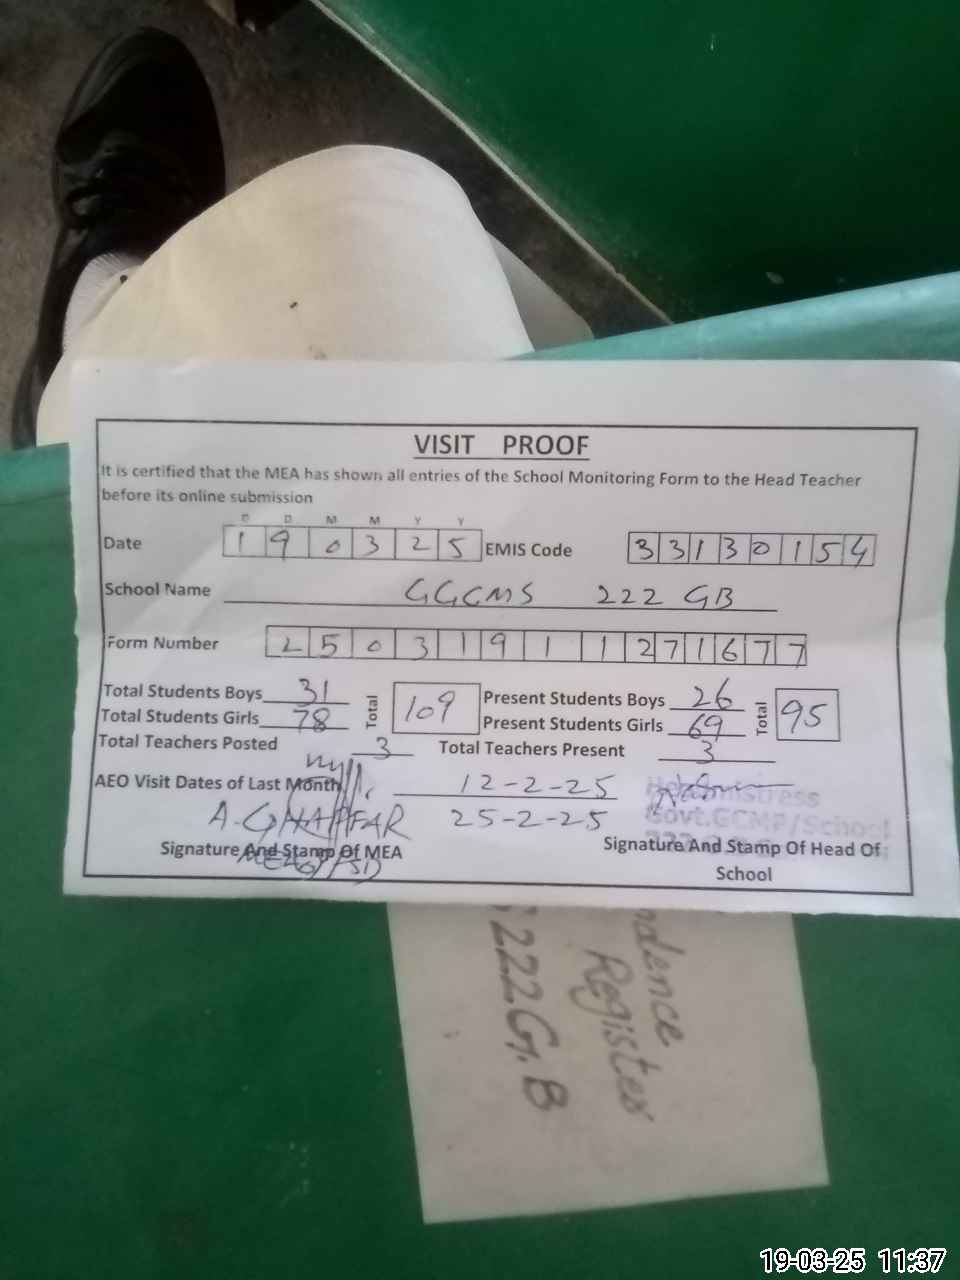 VISIT PROOF
It is certified that the MEA has shown all entries of the School Monitoring Form to the Head Teacher
before its online submission
D D M M Y Y
Date 1 9 0 3 2 5 EMIS Code 3 3 1 3 0 1 5 4
School Name GGCMS 222 GB
Form Number 2 5 0 3 1 9 1 1 2 7 1 6 7 7
Total Students Boys 31 Total 109 Present Students Boys 26 Total 95
Total Students Girls 78 Present Students Girls 69
Total Teachers Posted 3 Total Teachers Present 3
AEO Visit Dates of Last Month 12-2-25
25-2-25
A-GHAFFAR
Headmistress
Govt.GCMP/School
Signature And Stamp Of MEA
Signature And Stamp Of Head Of
School
Register
222 G.B
19-03-25 11:37